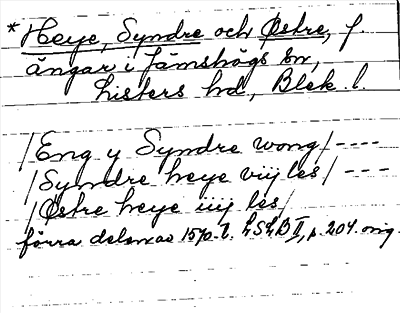 * Heye, Syndre och Østre, f.
ängar i Jämshögs sn,
Listers hd, Blek. l.
/Eng y Syndre wong/----
/Syndre heye viij les/---
/Østre heye iiij les/
förra delen av 1570-t. LSLB II, s. 204. orig.